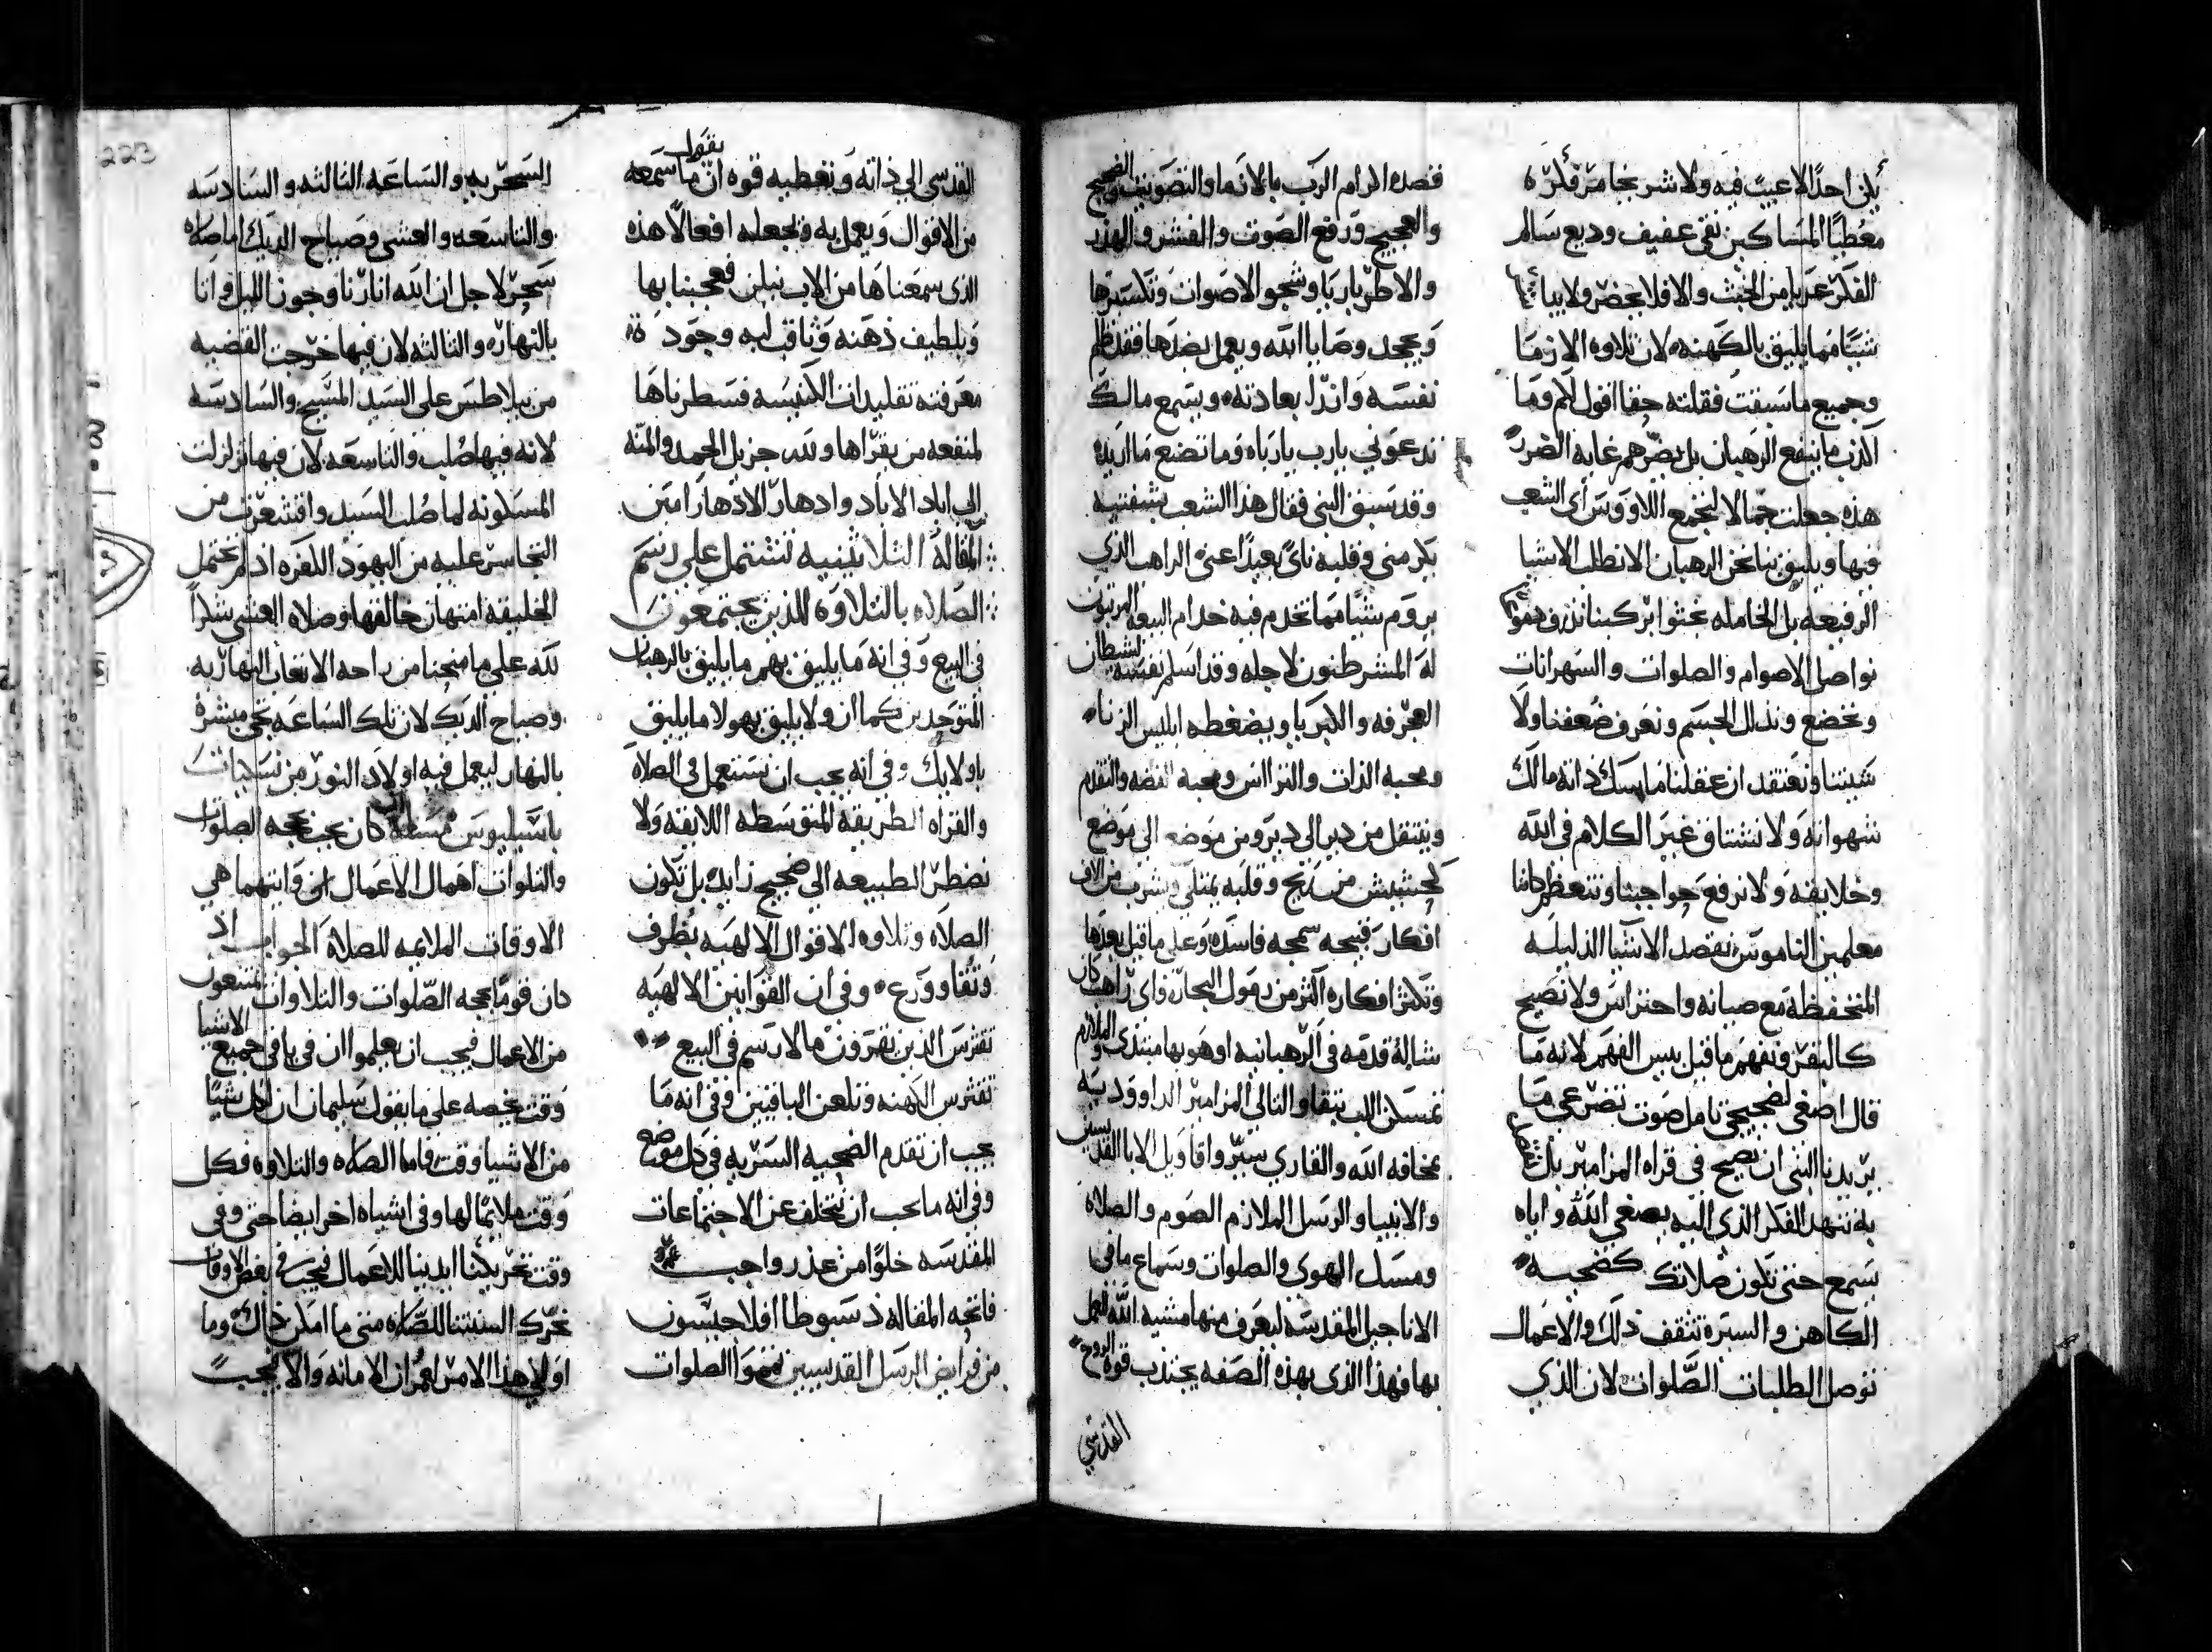 يكن احدًا لا عيب فيه ولا شر بخامر فكره
معطيًا المساكين نقي عفيف وديع سالم
الفكر عريا من الخبث والا فلا يحضر ولا
شيئًا مما يليق بالكهنه لان تلاوه الارما
وجميع ما سبقت فقلته حقا اقول لكم وما
الذي ما ينفع الرهبان بل يضرهم غايه الضرر
هذه جعلت حمالا لتجمع اللاووس اي الشعب
فيها ويليق بنا نحن الرهبان الا نطلب الاشيا
الرفيعه بل الخامله نحثوا بركبنا نذرف دموعًا
نواصل الاصوام والصلوات والسهرانات
ونخضع ونذلل الجسم ونعرف ضعفنا ولا
شيبتنا ونعتقد ان عقلنا ماسك ذاته مالك
شهواته ولا نشتاق غير الكلام في الله
وخلايقه ولا نرفع حواجبنا ونتعظم كاننا
معلمين الناموس نقصد الاشيا الذليله
المتحفظه مع صيانه واحتراس ولا نصيح
كالبقر ونفهم ما قيل بيسر الفهم لانه ما
قال اصغى لضجيجي تامل صوت تضرعي ما
يريدنا النبي ان نصيح في قراه المزامير بل
به نتنهد الفكر الذي اليه يصغي الله واياه
يسمع حتى تكون صلاتك كضحيه
الكاهن والستره تثقف ذلك والاعمال
توصل الطلبات الصلوات لان الذي
قصده اكرام الرب بالارما والتصويت والضجيج
والعجيج ورفع الصوت والفشر والهذر
والاطرباريا وشجو الاصوات وتكسيرها
ويجحد وصايا الله ويعمل بضدها فقد ظلم
نفسه واندل بعادته ويسمع مالك
تدعوني يارب يارباه وما تصنع ما اريده
وقد سبق النبي فقال هذا الشعب بشفتيه
يكرمني وقلبه ناى بعيدًا عني الراهب الذي
يروم شيًا مما تخدم فيه خدام البيعه المرتبون
له المشرطنون لاجله وقد اسلم نفسه لشيطان
العجرفه والكبريا ويضغطه ابليس الزناء
ومحبه الذات والتراس ومحبه الفضه والتقدم
وينتقل من دير الى دير ومن موضع الى موضع
كحشيش من ريح وقلبه يمتلي ويشرب من الاف
افكار قبيحه سمجه فاسده وعلى ما قيل بعدها
وتكثر افكاره اكثر من رمول البحار واي راهب كان
شاله قدمه في الرهبانيه او هو بها مبتدى والملازم
تمسكن اللب بتقا والتالي المزامير الداووديه
بمخافه الله والقاري سير واقاويل الابا القديسين
والانبيا والرسل الملازم الصوم والصلاه
ومسك الهوى والصلوات وسماع ما في
الاناجيل المقدسه ليعرف منها مشيه الله العمل
بها فهذا الذي بهذه الصفه يجتذب قوه الروح
القدسي
القدسي الى ذاته وتعطيه قوه ان ما سمعه يقول
من الاقوال ويعمل به وتجعله افعالًا هذه
الذي سمعناها من الاب نيلن فعجبنا بها
وبلطيف ذهنه وثاقب لبه وجوده
معرفته تقليدات الكنيسه فسطرناها
لمنفعه من يقراها ولله جزيل الحمد والمنه
الى اباد الاباد وادهار الادهار امين
المقالة الثلاثينيه تشتمل على رسم
الصلاه بالتلاوه للذين يجتمعون
في البيع وفي انه ما يليق بهم ما يليق بالرهبان
المتوحدين كما ان ولا يليق بهولا ما يليق
باولايك وفي انه يجب ان نستعمل في الصلاه
والقراه الطريقه المتوسطه اللايقه ولا
نضطر الطبيعه الى ضجيج زايد بل تكون
الصلاه وتلاوه الاقوال الالهيه بظرف
وتقا وورع وفي ان القوانين الالهيه
تفرس الذين يقرون مالا رسم في البيع
تفترس الكهنه وتلعن الباقيين وفي انه ما
يجب ان تقدم الضحيه السريه في كل موضع
وفي انه ما يجب ان نتخلف عن الاجتماعات
المقدسه خلوًا من عذر واجب
فاتحه المقاله ذسبوطا افلاجيسون
من فرايض الرسل القديسين تمموا الصلوات
السحريه والساعه الثالثه والسادسه
والتاسعه والعشى وصباح الديك اما صلاه
سحر لاجل ان الله انارنا وجوز الليل واتانا
بالنهاره والثالثه لان فيها خرجت القضيه
من بيلاطس على السيد المسيح والسادسه
لانه فيها صلب والتاسعه لان فيها تزلزلت
المسكونه لما صلب السيد واقشعرت من
التجاسر عليه من اليهود الكفره اذ لم تحتمل
الخليقه امتهان خالقها وصلاه العشى شكرًا
لله على ما منحنا من راحه الاتعاب النهاريه
وصباح الديك لان تلك الساعه تجي مبشرة
بالنهار ليعمل فيه اولاد النور من نسكيات
باسيليوس مساله ان كان يجب بحجه الصلوات
والتلوات اهمال الاعمال ان وايتهما هي
الاوقات الملايمه للصلاه الجواب اذ
كان قومًا بحجه الصلوات والتلاوات يمتنعون
من الاعمال فيجب ان يعلموا ان في باقي جميع الاشيا
وقت يخصه على ما يقول سليمان ان لكل شيًا
من الاشيا وقت فاما الصلاه والتلاوه فكل
وقت ملايمًا لها وفي اشياه اخر ايضًا حتى وفي
وقت تحريكنا ايدينا للاعمال فيجب في بعض الاوقات
نحرك السنتنا للصلاه متى ما امكن ذاك وما
اولى هذا الامر لعمران الامانه والا فيجب